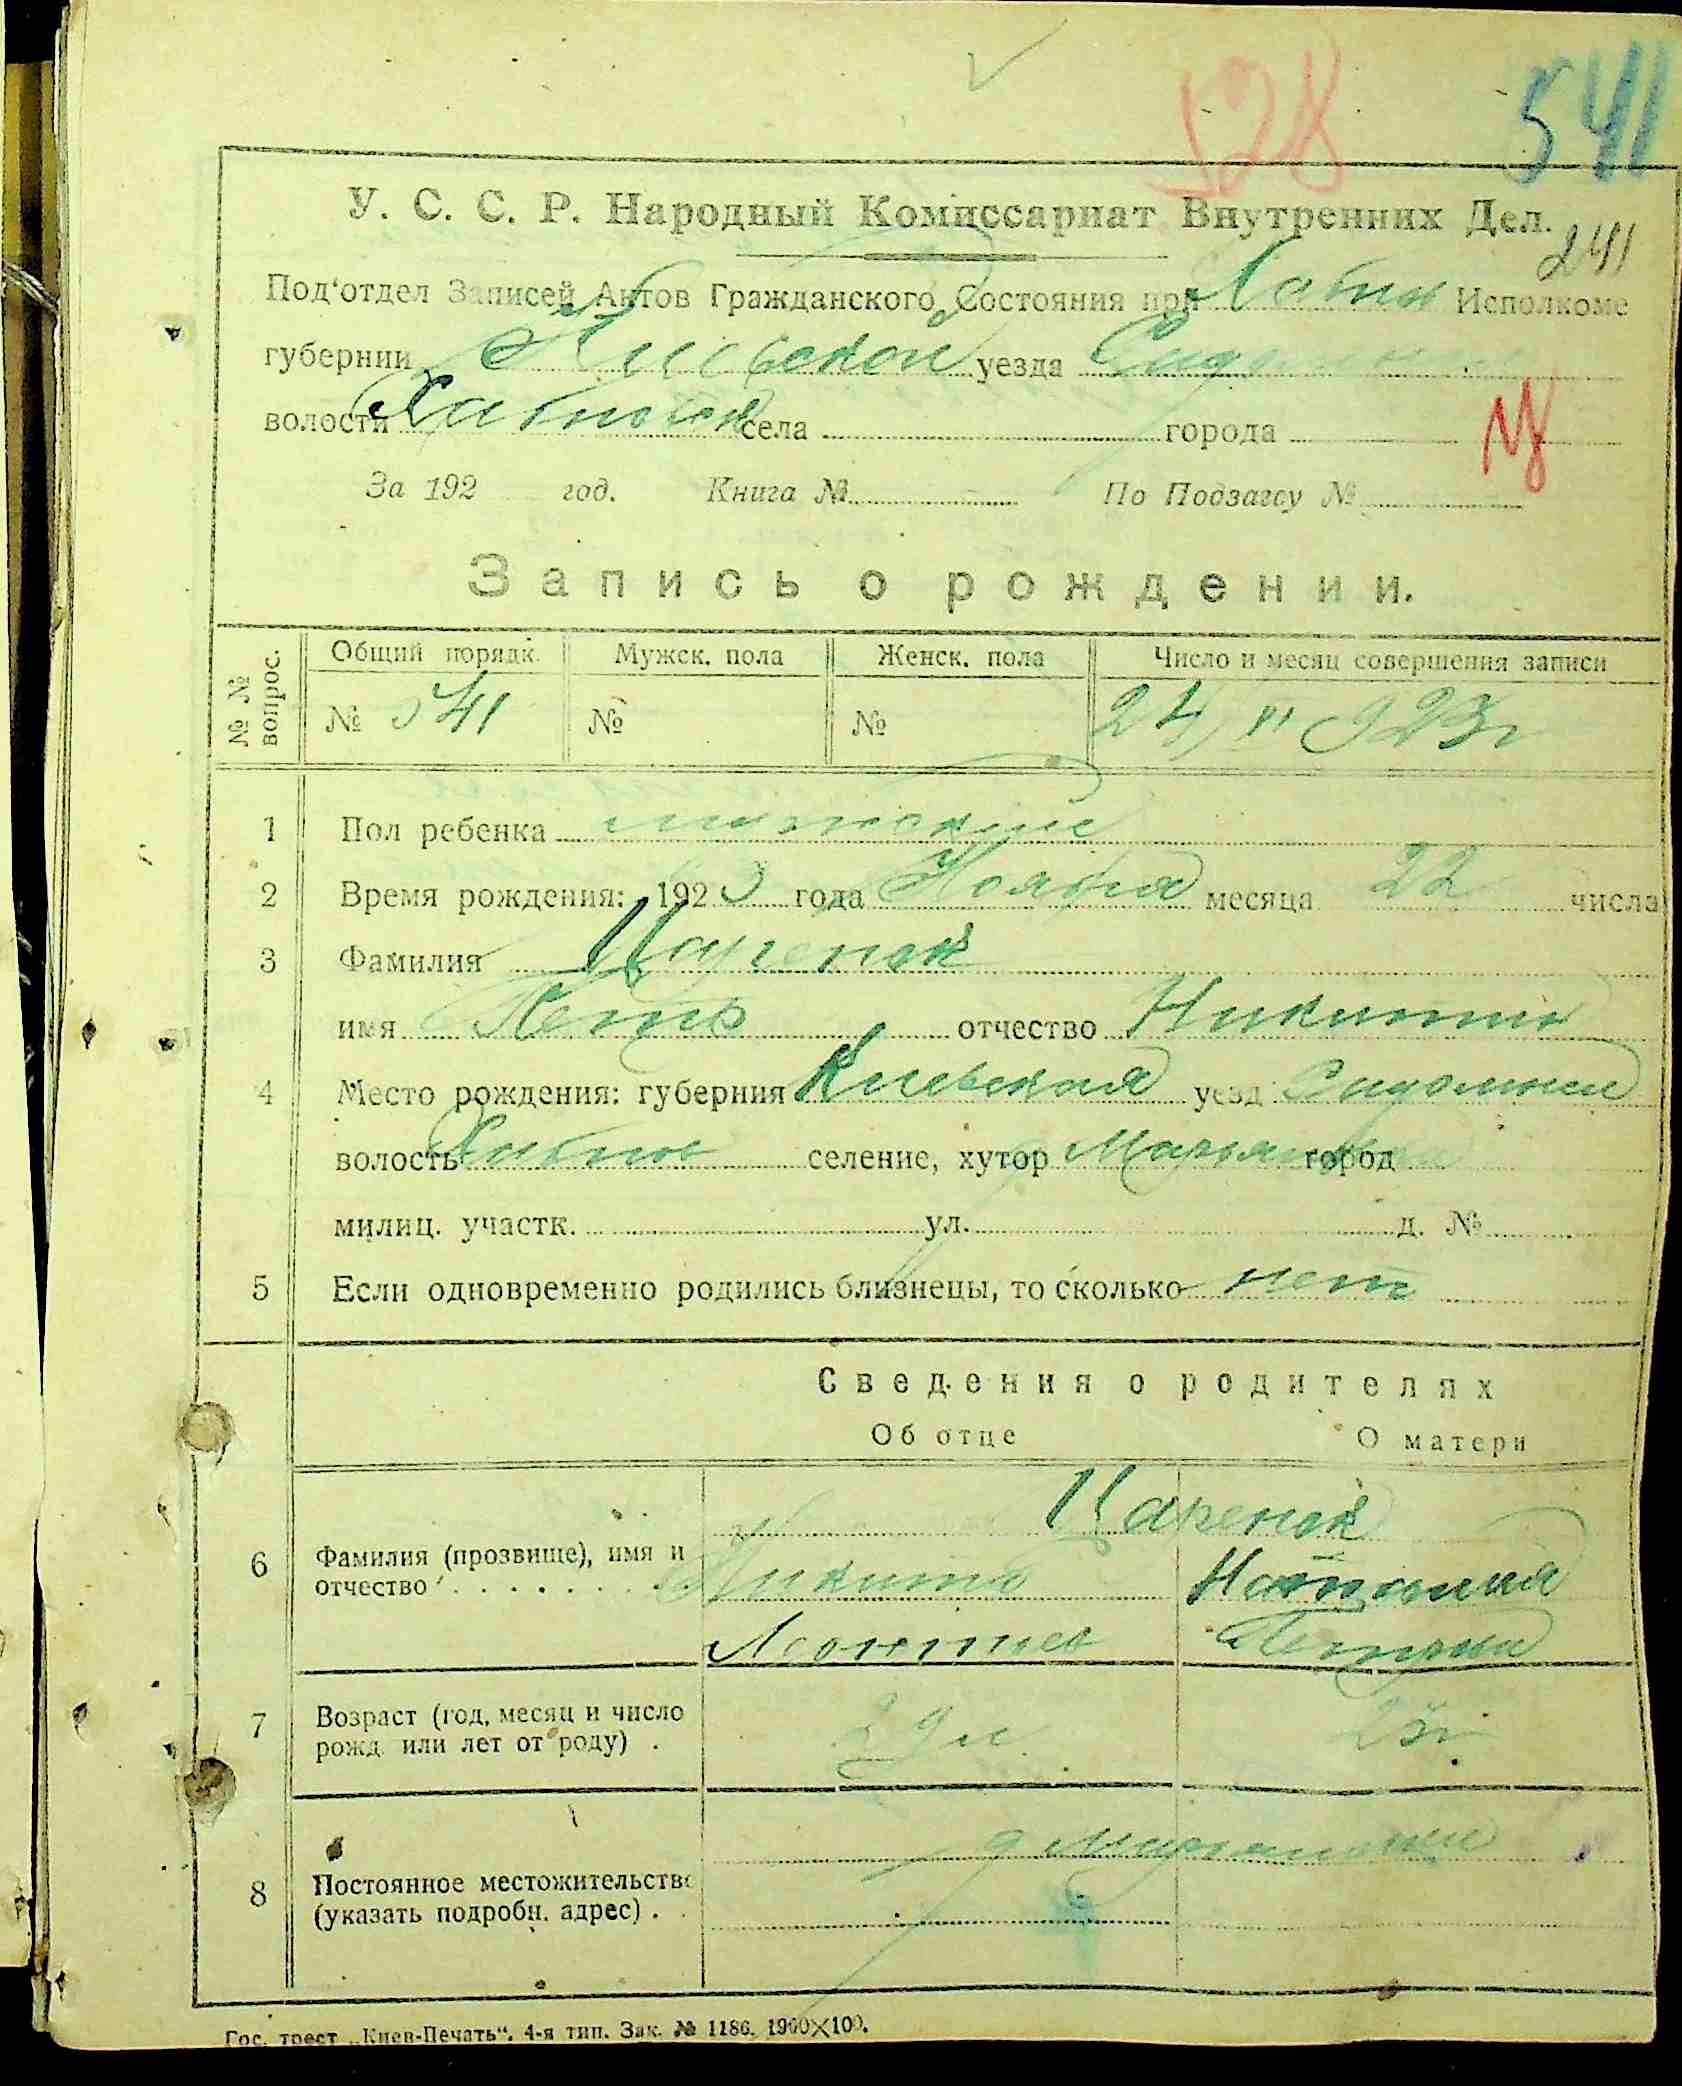 541
У. С. С. Р. Народный Комиссариат Внутренних Дел.
241
Под'отдел Записей Актов Гражданского Состояния при Исполкоме
губернии Киевской уезда
волости села города
За 192 год. Книга № По Подзагсу №
Запись о рождении.
№ № вопрос. Общий порядк. Мужск. пола Женск. пола Число и месяц совершения записи
№ 541 № № 24/XI 923г
1 Пол ребенка мужский
2 Время рождения: 1923 года Ноября месяца 22 числа
3 Фамилия Царенок
имя Петр отчество Никитин
4 Место рождения: губерния Киевская уезд
волость Хабное селение, хутор город
милиц. участк. ул. д. №
5 Если одновременно родились близнецы, то сколько нет
Сведения о родителях
Об отце О матери
Царенок
6 Фамилия (прозвище), имя и отчество Никита
Петровна
7 Возраст (год, месяц и число рожд. или лет от роду) . 29 л
8 Постоянное местожительство (указать подробн. адрес) .
Гос. трест „Киев-Печать“. 4-я тип. Зак. № 1186. 1900×100.